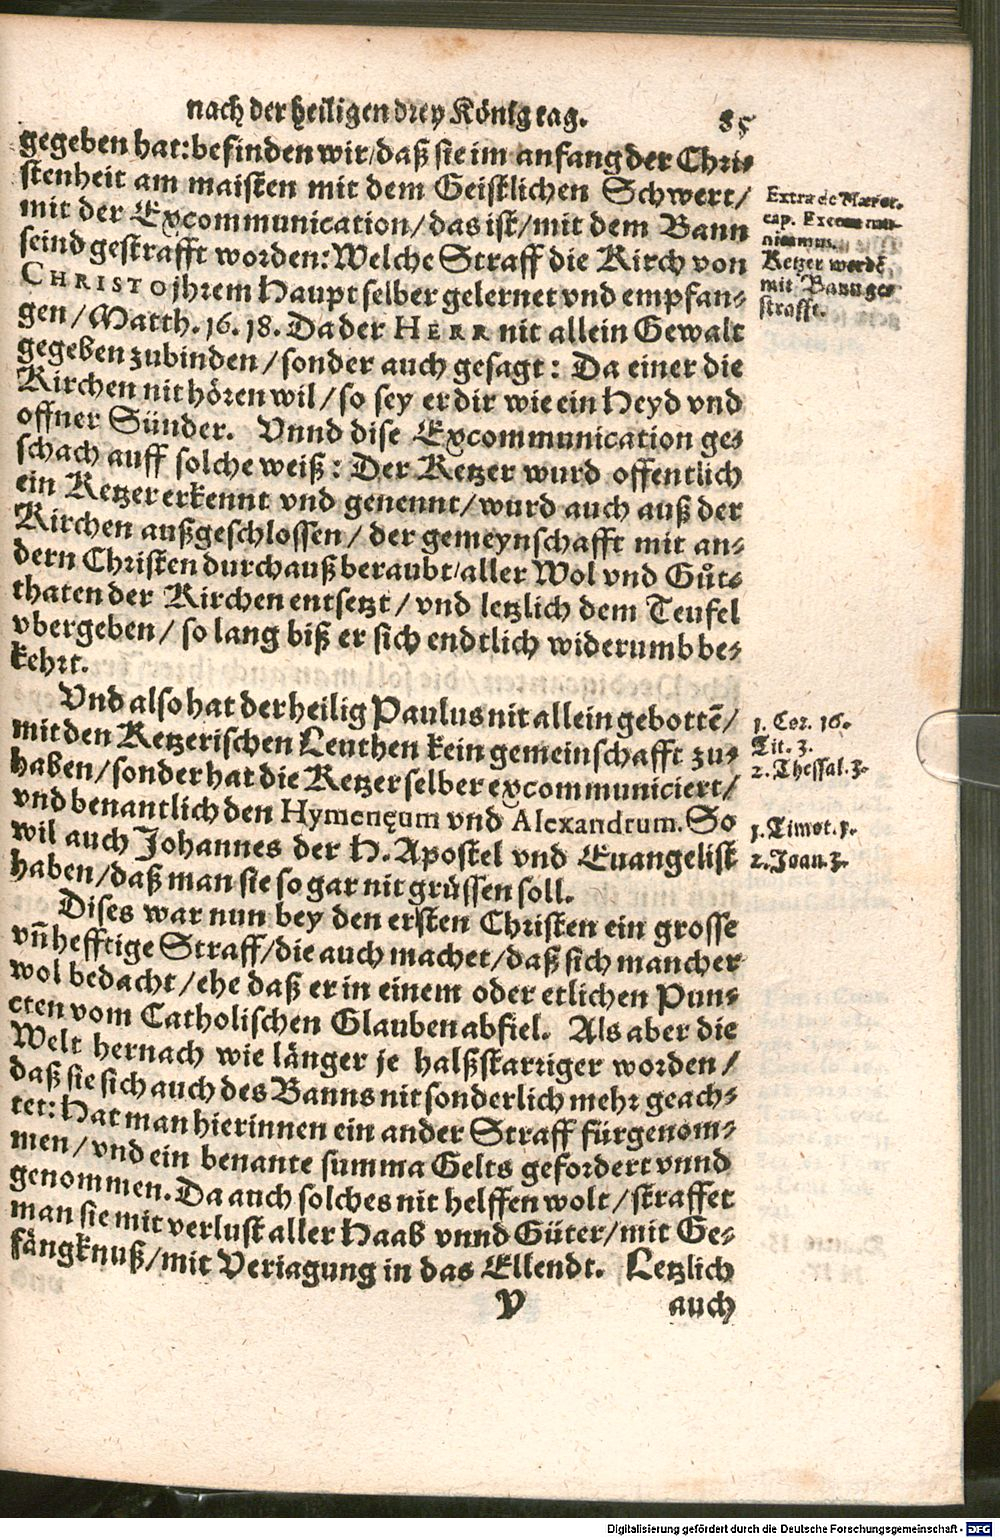 nach der heiligen drey König tag. 85
gegeben hat: befinden wir / daß sie im anfang der Chri-
stenheit am maisten mit dem Geistlichen Schwert /
mit der Excommunication / das ist / mit dem Bann
seind gestrafft worden: Welche Straff die Kirch von
CHRISTO jhrem Haupt selber gelernet vnd empfan-
gen / Matth. 16. 18. Da der HERR nit allein Gewalt
gegeben zubinden / sonder auch gesagt: Da einer die
Kirchen nit hören wil / so sey er dir wie ein Heyd vnd
offner Sünder. Vnnd dise Excommunication ge-
schach auff solche weiß: Der Ketzer wurd offentlich
ein Ketzer erkennt vnd genennt / wurd auch auß der
Kirchen außgeschlossen / der gemeynschafft mit an-
dern Christen durchauß beraubt / aller Wol vnd Gůt-
thaten der Kirchen entsetzt / vnd letzlich dem Teufel
vbergeben / so lang biß er sich endtlich widerumb be-
kehrt.
Vnd also hat der heilig Paulus nit allein gebottē /
mit den Ketzerischen Leuthen kein gemeinschafft zu-
haben / sonder hat die Ketzer selber excommuniciert /
vnd benantlich den Hymenęum vnd Alexandrum. So
wil auch Johannes der H. Apostel vnd Euangelist
haben / daß man sie so gar nit grüssen soll.
Dises war nun bey den ersten Christen ein grosse
vn̄ hefftige Straff / die auch machet / daß sich mancher
wol bedacht / ehe daß er in einem oder etlichen Pun-
cten vom Catholischen Glauben abfiel. Als aber die
Welt hernach wie länger je halßstarriger worden /
daß sie sich auch des Banns nit sonderlich mehr geach-
tet: Hat man hierinnen ein ander Straff fürgenom-
men / vnd ein benante summa Gelts gefordert vnnd
genommen. Da auch solches nit helffen wolt / straffet
man sie mit verlust aller Haab vnnd Güter / mit Ge-
fängknuß / mit Veriagung in das Ellendt. Letzlich
V auch
Extra de Hæret.
cap. Excommu-
nicamus.
Ketzer werdē
mit Bann ge-
strafft.
1. Cor. 16.
Tit. 3.
2. Thessal. 3.
1. Timot. 1.
2. Joan. 3.
Digitalisierung gefördert durch die Deutsche Forschungsgemeinschaft - DFG